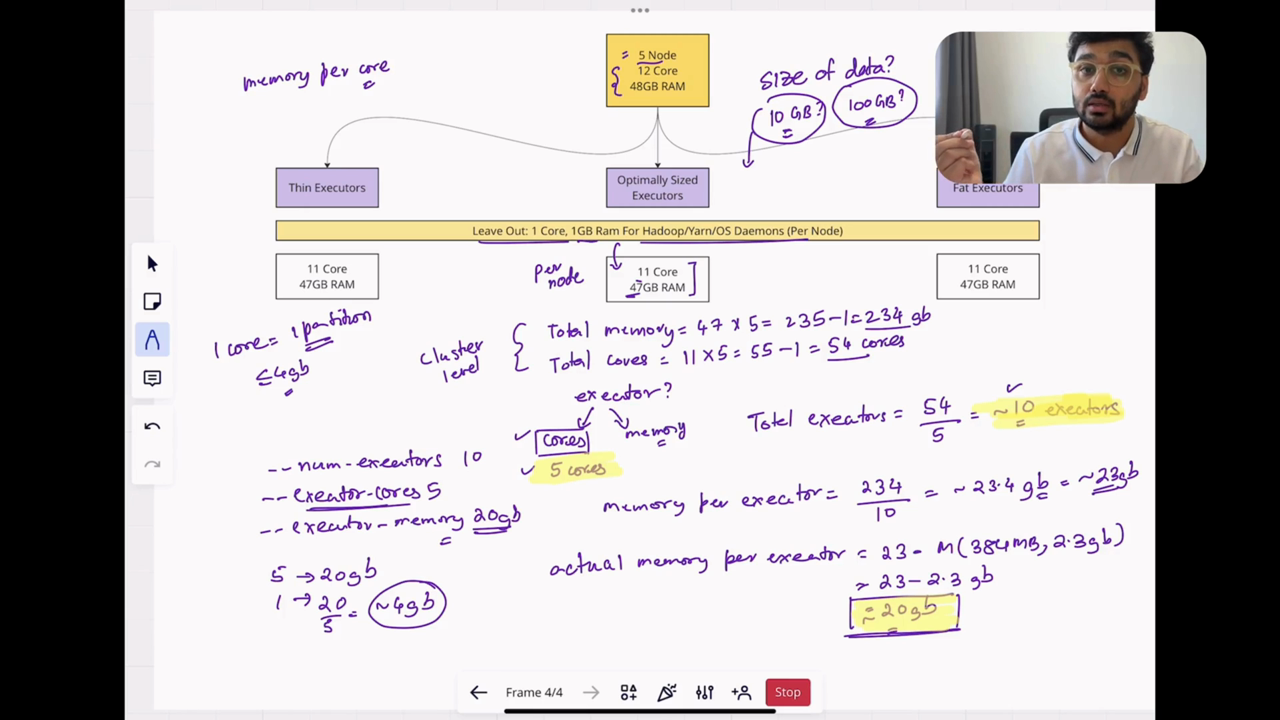 memory per core
= 5 Node
12 Core
48GB RAM
size of data?
10 GB?
100GB?
Thin Executors
Optimally Sized
Executors
Fat Executors
Leave Out: 1 Core, 1GB Ram For Hadoop/Yarn/OS Daemons (Per Node)
11 Core
47GB RAM
Per
node
11 Core
47GB RAM
11 Core
47GB RAM
1 core = 1 partition
≤4gb
cluster
level
Total memory = 47 x 5 = 235-1 = 234 gb
Total cores = 11 x 5 = 55-1 = 54 cores
executor?
cores
memory
5 cores
Total executors = 54/5 = ~10 executors
-- num-executors 10
-- executor-cores 5
-- executor-memory 20gb
memory per executor = 234/10 = ~23.4 gb = ~23gb
actual memory per executor = 23 - M(384MB, 2.3gb)
~ 23-2.3 gb
≈ 20gb
5 → 20gb
1 → 20/5 = ~4gb
Frame 4/4
Stop